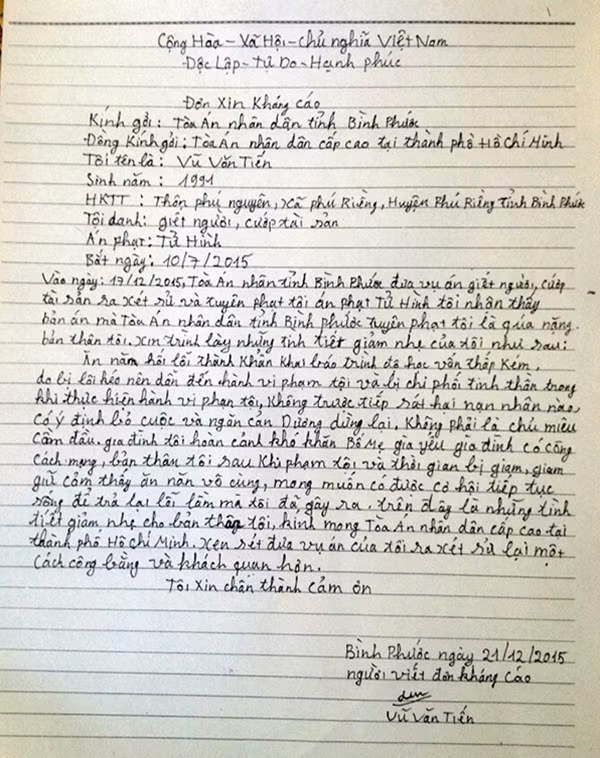 Cộng Hòa - Xã Hội - chủ nghĩa Việt Nam
Độc Lập - Tự Do - Hạnh phúc
Đơn Xin Kháng cáo
Kính gởi: Tòa Án nhân dân tỉnh Bình Phước
Đồng Kính gởi: Tòa Án nhân dân cấp cao tại thành phố Hồ Chí Minh
Tôi tên là: Vũ Văn Tiến
Sinh năm: 1991
HKTT: Thôn phú nguyên, xã phú Riềng, Huyện Phú Riềng tỉnh Bình Phước
Tội danh: giết người, cướp tài sản
Án phạt: Tử Hình
Bắt ngày: 10/7/2015
Vào ngày: 17/12/2015, Tòa Án nhân tỉnh Bình Phước đưa vụ án giết người, cướp
tài sản ra xét sử và tuyên phạt tôi án phạt Tử Hình tôi nhận thấy
bản án mà Tòa Án nhân dân tỉnh Bình Phước tuyên phạt tôi là qúa nặng.
bản thân tôi, xin trình lày những tình tiết giảm nhẹ của tôi như sau:
Ăn năn hối lỗi thành Khẩn Khai báo trình độ học vấn thấp Kém,
do bị lôi héo nên dẫn đến hành vi phạm tội và bị chi phối tinh thần trong
khi thực hiện hành vi phạm tội, Không trược tiếp sát hại nạn nhân nào,
Có ý định bỏ cuộc và ngăn cản Dương dừng lại, Không phải là chủ mưu
Cầm đầu, gia đình tôi hoàn cảnh khó khăn Bố Mẹ già yếu gia đình có công
Cách mạng, bản thân tôi sau Khi phạm tội và thời gian bị giam, giam
giữ cảm thấy ăn năn vô cùng, mong muốn có được cơ hội tiếp tục
sống để trả lại lỗi lầm mà tôi đã gây ra. trên đây là những tình
tiết giảm nhẹ cho bản thân tôi, kính mong Tòa Án nhân dân cấp cao tại
thành phố Hồ Chí Minh. Xen sét đưa vụ án của tôi ra xét sử lại một
Cách công bằng và khách quan hơn.
Tôi Xin chân thành cảm ơn
Bình Phước ngày 21/12/2015
người viết đơn kháng cáo
Vũ Văn Tiến